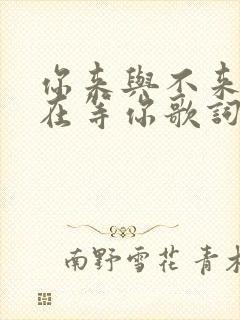 你来與不来
在等你歌詞
南野雪花 青木